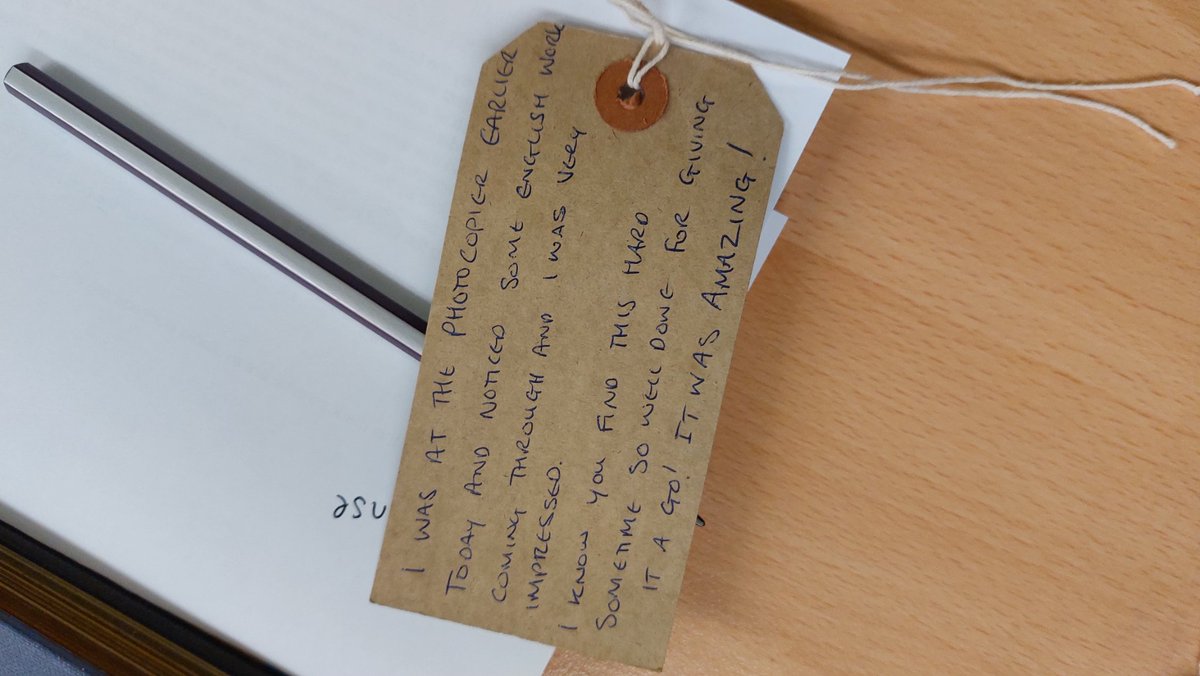 I WAS AT THE PHOTOCOPIER EARLIER
TODAY AND NOTICED SOME ENGLISH WORK
COMING THROUGH AND I WAS VERY
IMPRESSED.
I KNOW YOU FIND THIS HARD
SOMETIME SO WELL DONE FOR GIVING
IT A GO! IT WAS AMAZING!
use